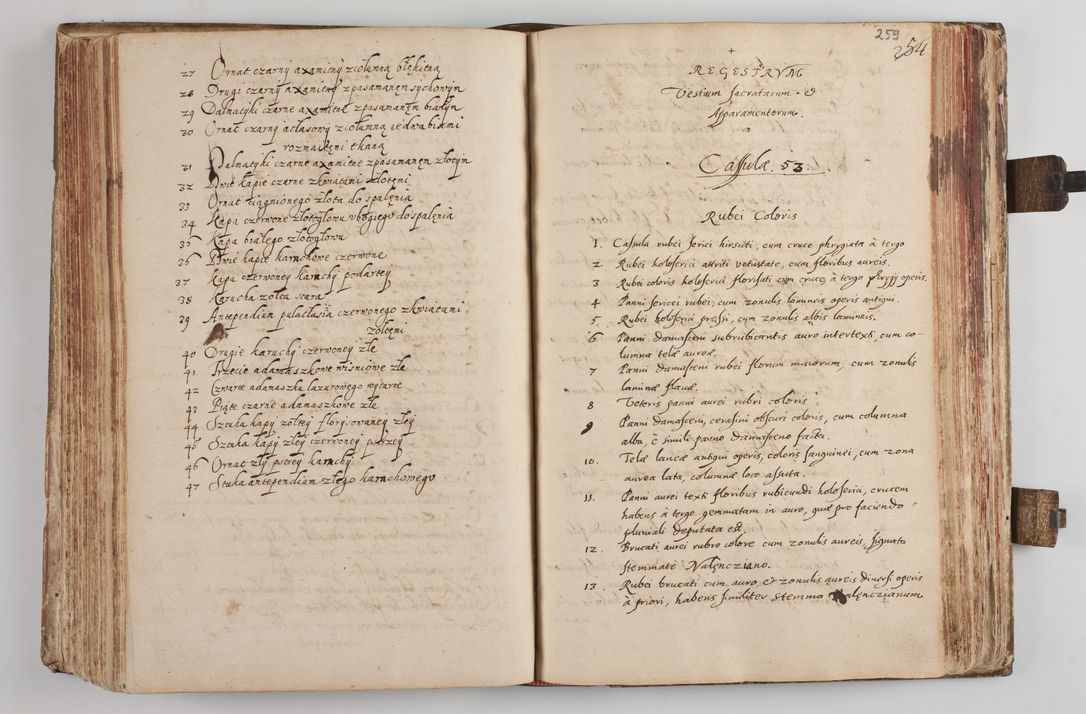 27 Ornat czarny axamitny zcolumną błękitną
28 Drugi czarny axamitny zpasamanem sychowym
29 Dalmatyki czarne axamitne zpasamanem białym
30 Ornat czarny atlasowy zcolumną iedwabiami
rozmaitęni tkaną
31 Dalmatyki czarne axamitne zpasamanęn złotym
32 Dwie kapie czarne zkwiatami złotęmi
33 Ornat ciągnionego złota do spalęnia
34 Kapa czerwone złotogłowu vbogiego do spalęnia
35 Kapa białego złotogłowu
36 Dwie kapie karuchowe czerwone
37 Kapa czerwoney karuchy podartey
38 Karucha zołta stara
39 Antependium czerwonego zkwiatami
zołtęni
40 Drugie karuchy czerwoney złe
41 Trzecie adamaszkowe wisniowe złe
42 Czwarte adamaszku lazurowego wytarte
43 Piąte czarne adamaszkowe złe
44 Sztuka kapy zołtey florysowaney złey
45 Sztuka kapy złey czerwoney pstrzey
46 Ornat zły pstrey karuchy
47 Stuka antependium złego karuchowego
259
254
+
REGESTRVM
Vestium sacratarum &
Apparamentorum.
Cassulæ. 53.
Rubei Coloris
1. Cassula rubei serici hirsuti, cum cruce phrygiata à tergo
2 Rubei holoserici attriti vetustate, cum floribus aureis.
3 Rubei coloris holoserici florisati cum cruce à tergo phrygij operis.
4 Panni sericei rubei, cum zonulis lamineis operis antiqui.
5. Rubei holoserici pressi, cum zonulis albis lamineis.
6 Panni damasceni subrubicantis auro intertexti, cum co
lumna telæ aureæ.
7 Panni damasceni rubei florum maiorum, cum zonulis
laminæ flauæ.
8 Veteris panni aurei rubri coloris
9 Panni damasceni, cerasini obscuri coloris, cum columna
alba, è simili panno damasceno facta.
10. Telæ lanceæ antiqui operis, coloris sanguinei, cum zona
aurea lata, columnæ loco assuta.
11. Panni aurei texti floribus rubicundi holosericij, crucem
habens à tergo gemmatam in auro, quæ pro faciendo
pluuiali deputata est.
12. Brucati aurei rubro colore cum zonulis aureis, signata
stemmate Valęncziano.
13 Rubei brucati cum auro, & zonulis aureis diuersi operis
à priori, habens similiter stemma Valęnczianum